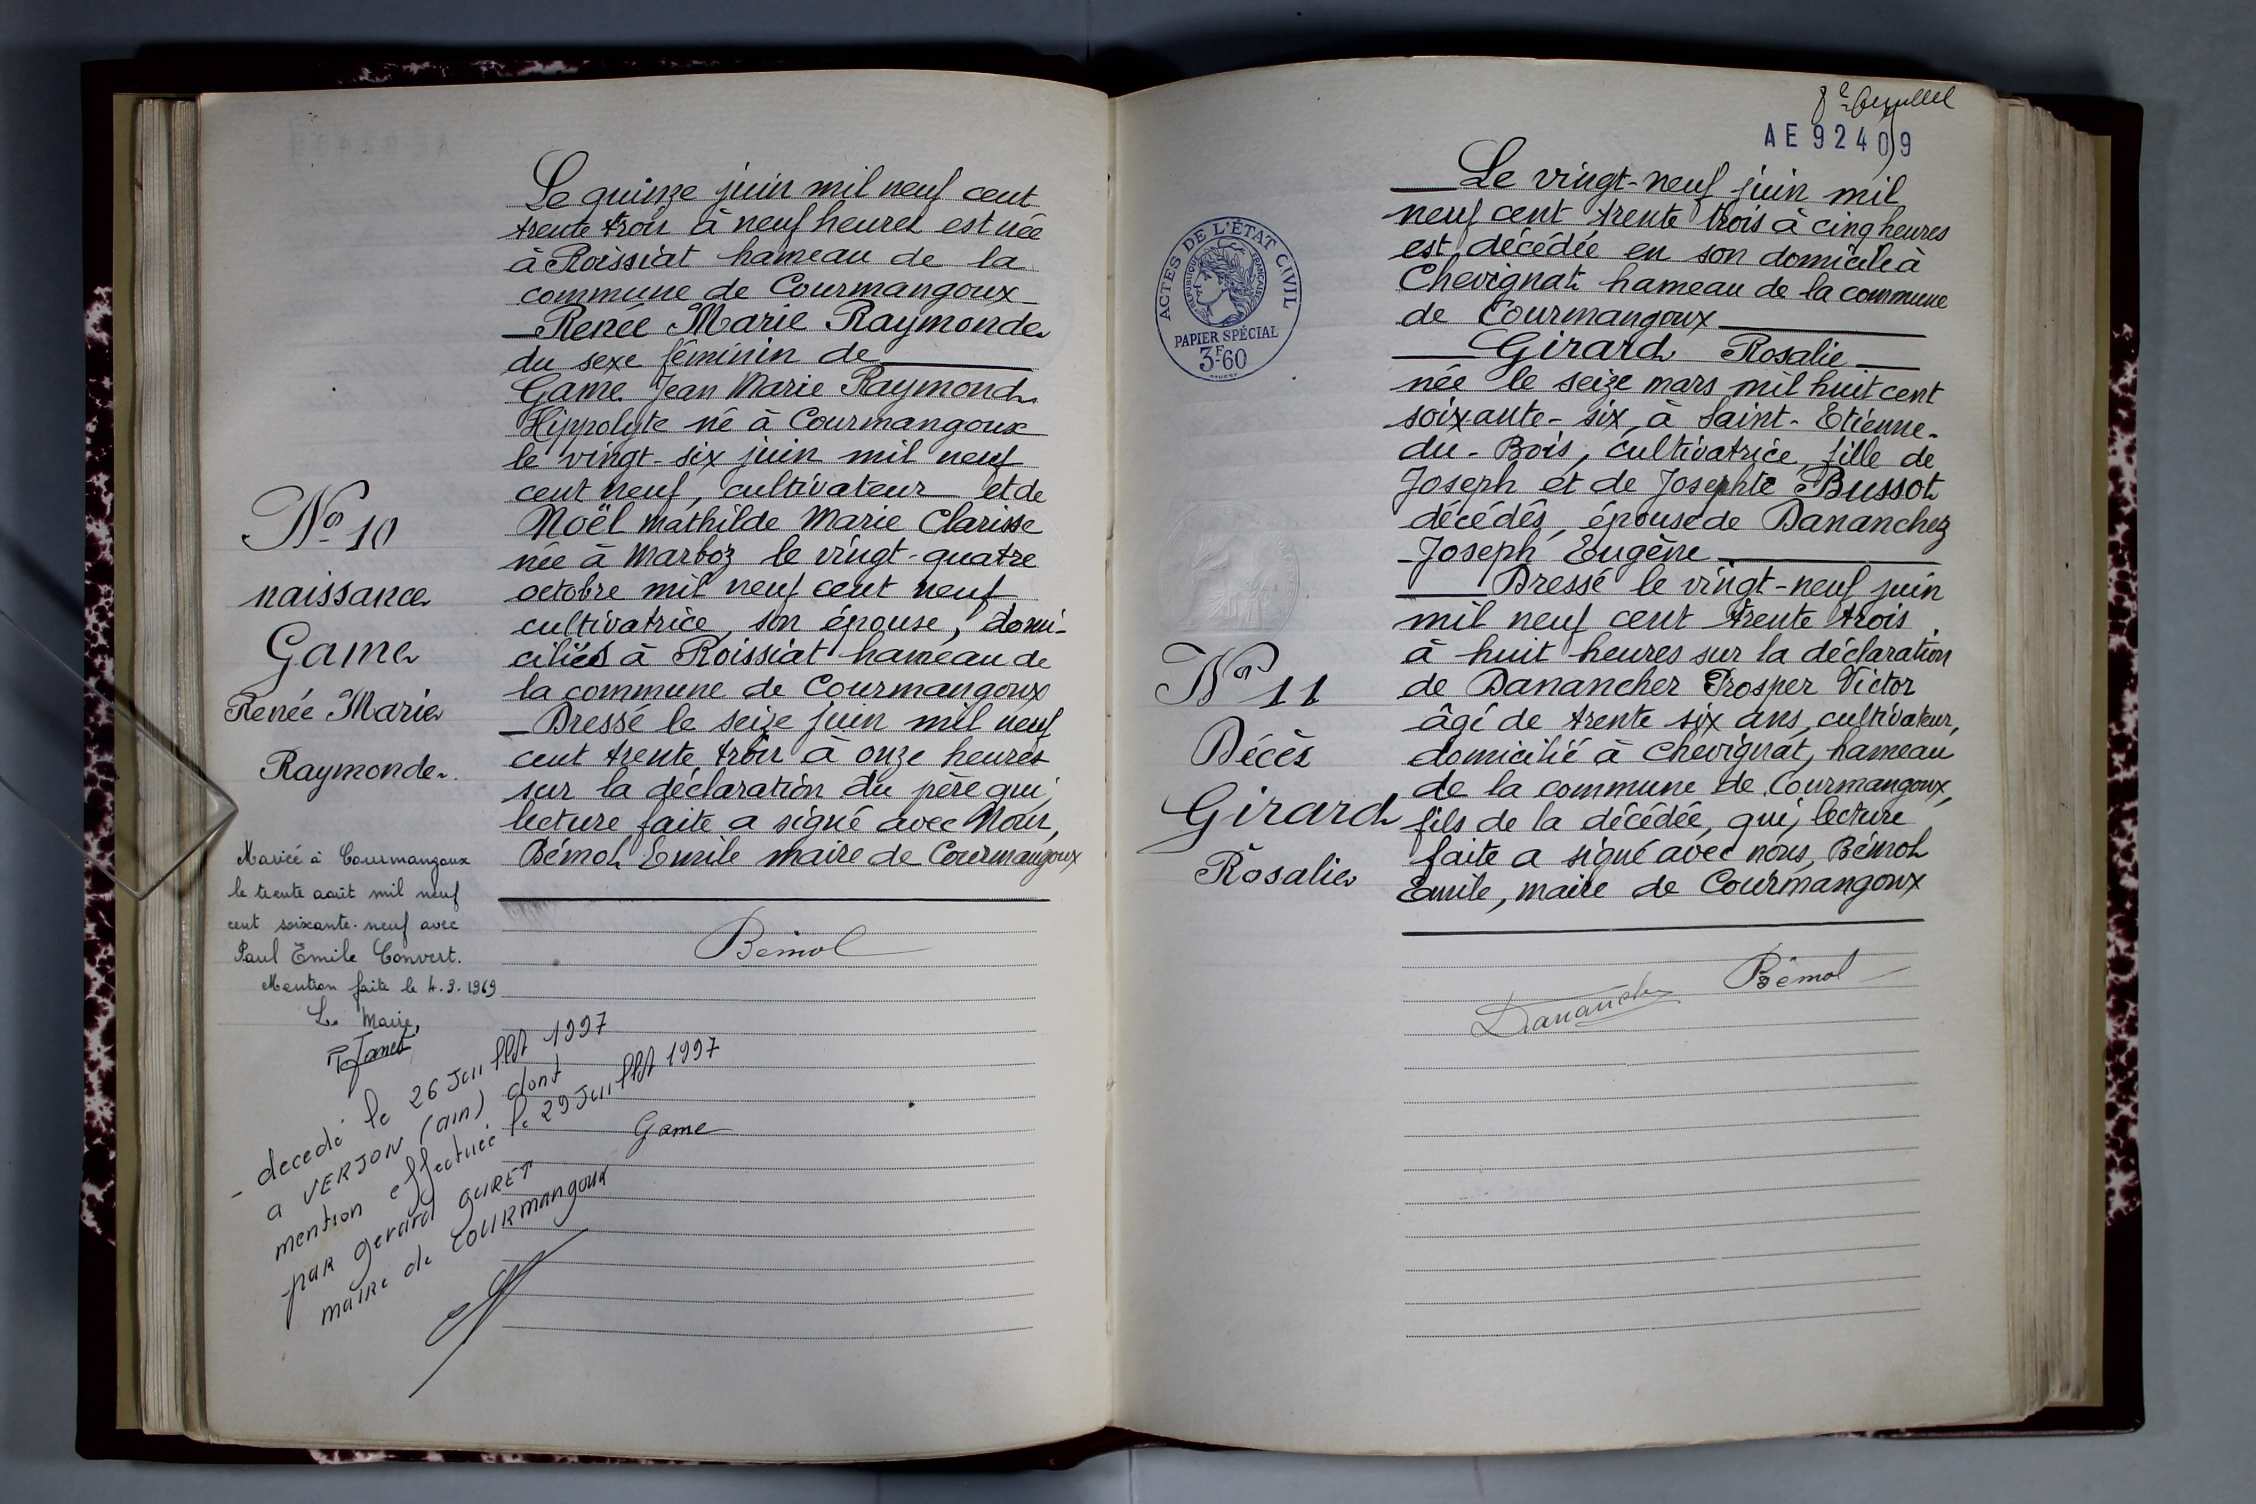 Le quinze juin mil neuf cent
trente trois à neuf heures est née
à Roissiat hameau de la
commune de Courmangoux
Renée Marie Raymonde
du sexe féminin de
Game Jean Marie Raymond
Hippolyte né à Courmangoux
le vingt-six juin mil neuf
cent neuf, cultivateur et de
Noël Mathilde Marie Clarisse
née à Marboz le vingt-quatre
octobre mil neuf cent neuf
cultivatrice, son épouse, domi-
ciliés à Roissiat hameau de
la commune de Courmangoux
Dressé le seize juin mil neuf
cent trente trois à onze heures
sur la déclaration du père qui,
lecture faite a signé avec Nous,
Bémol Emile maire de Courmangoux
Bémol
Game
No 10
naissance
Game
Renée Marie
Raymonde
Mariée à Courmangoux
le trente août mil neuf
cent soixante-neuf avec
Paul Emile Convert.
Mention faite le 4.9.1969
Le Maire,
- decedé le 26 Juillet 1997
a VERJON (ain) dont
mention effectuée le 29 Juillet 1997
par gerard GURET
maire de COURMANGOUX
AE 92409
Le vingt-neuf juin mil
neuf cent trente trois à cinq heures
est décédée en son domicile à
Chevignat hameau de la commune
de Courmangoux
Girard Rosalie
née le seize mars mil huit cent
soixante-six, à Saint-Etienne-
du-Bois, cultivatrice, fille de
Joseph et de Josephte Bussot
décédés, épouse de Dananchez
Joseph Eugène
Dressé le vingt-neuf juin
mil neuf cent trente trois
à huit heures sur la déclaration
de Danancher Prosper Victor
âgé de trente six ans, cultivateur,
domicilié à Chevignat, hameau
de la commune de Courmangoux,
fils de la décédée, qui, lecture
faite a signé avec nous, Bémol
Emile, maire de Courmangoux
Bémol
Dananche
ACTES DE L'ÉTAT CIVIL
RÉPUBLIQUE FRANÇAISE
PAPIER SPÉCIAL
3F60
No 11
Décès
Girard
Rosalie